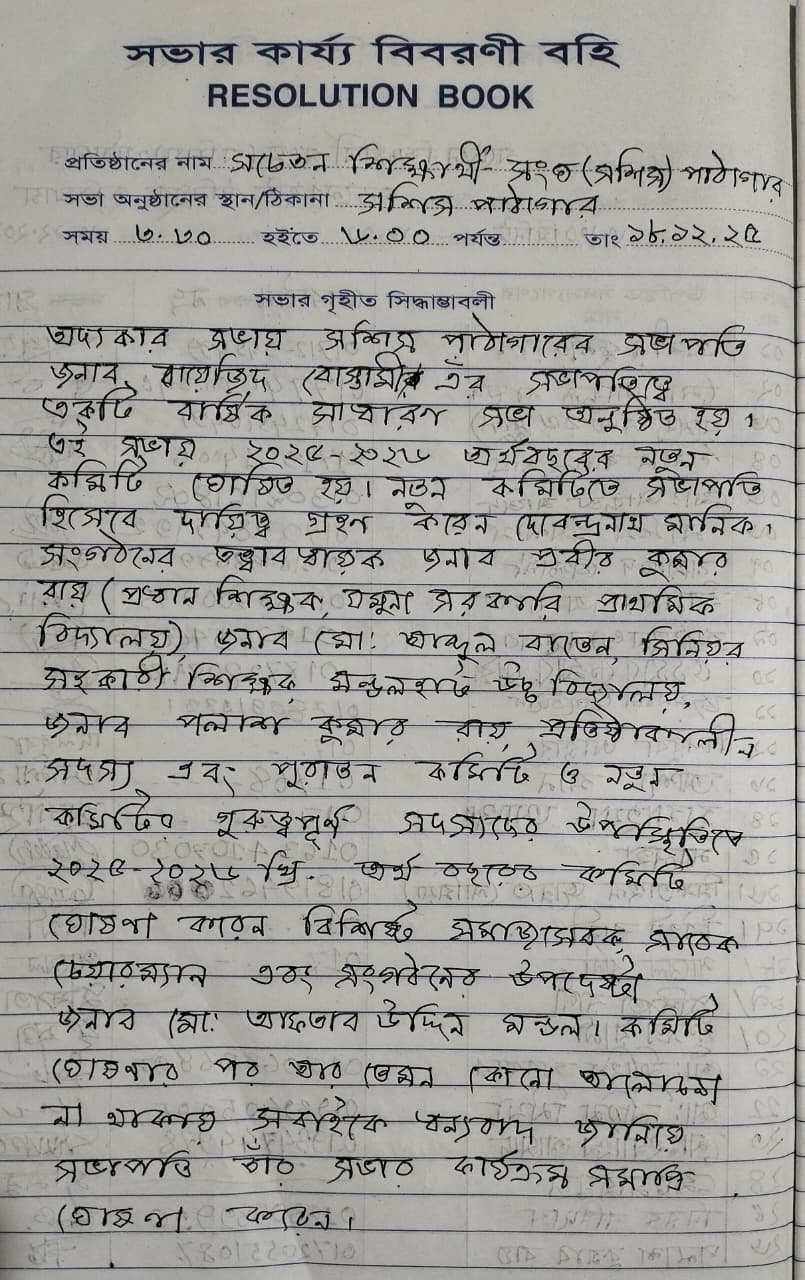 সভার কার্য্য বিবরণী বহি
RESOLUTION BOOK
প্রতিষ্ঠানের নাম সচেতন শিক্ষার্থী সংঘ (সশিস) পাঠাগার
সভা অনুষ্ঠানের স্থান/ঠিকানা সশিস পাঠাগার
সময় ৩.৩০ হইতে ৬.০০ পর্যন্ত তাং ১৮.১২.২৫
সভার গৃহীত সিদ্ধান্তাবলী
অদ্যকার সভায় সশিস পাঠাগারের সভাপতি
জনাব বায়েজিদ বোস্তামীর এঁর সভাপতিত্বে
একটি বার্ষিক সাধারণ সভা অনুষ্ঠিত হয়।
এই সভায় ২০২৫-২০২৬ অর্থবছরের নতুন
কমিটি ঘোষিত হয়। নতুন কমিটিতে সভাপতি
হিসেবে দায়িত্ব গ্রহন করেন দেবেন্দ্রনাথ মানিক।
সংগঠনের তত্ত্বাবধায়ক জনাব প্রবীর কুমার
রায় (প্রধান শিক্ষক, যমুনা সরকারি প্রাথমিক
বিদ্যালয়), জনাব মো: আব্দুল বাতেন, সিনিয়র
সহকারী শিক্ষক, মন্ডলহাট উচ্চ বিদ্যালয়,
জনাব পলাশ কুমার রায়, প্রতিষ্ঠাকালীন
সদস্য এবং পুরাতন কমিটি ও নতুন
কমিটির গুরুত্বপূর্ণ সদস্যদের উপস্থিতিতে
২০২৫-২০২৬ খ্রি. অর্থ বছরের কমিটি
ঘোষণা করেন বিশিষ্ট সমাজসেবক, সাবেক
চেয়ারম্যান এবং সংগঠনের উপদেষ্টা
জনাব মো: আফতাব উদ্দিন মন্ডল। কমিটি
ঘোষণার পর আর তেমন কোনো আলোচনা
না থাকায় সবাইকে ধন্যবাদ জানিয়ে
সভাপতি তাঁর সভার কার্যক্রম সমাপ্তি
ঘোষণা করেন।